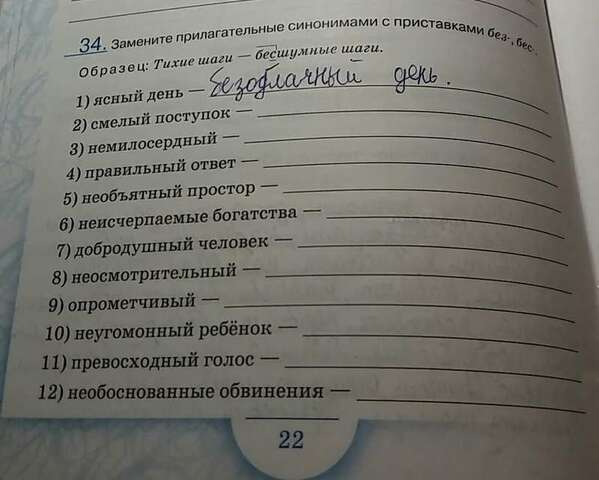 34. Замените прилагательные синонимами с приставками без-, бес-.
Образец: Тихие шаги — бесшумные шаги.
1) ясный день — безоблачный день.
2) смелый поступок —
3) немилосердный —
4) правильный ответ —
5) необъятный простор —
6) неисчерпаемые богатства —
7) добродушный человек —
8) неосмотрительный —
9) опрометчивый —
10) неугомонный ребёнок —
11) превосходный голос —
12) необоснованные обвинения —
22